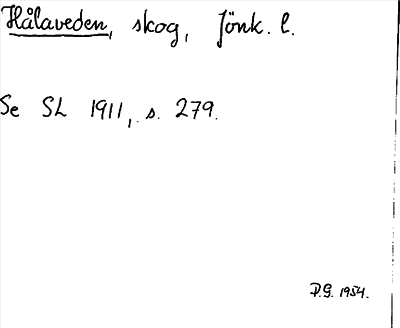 Hålaveden, skog, Jönk. l.
Se SL 1911, s. 279.
D.G. 1954.